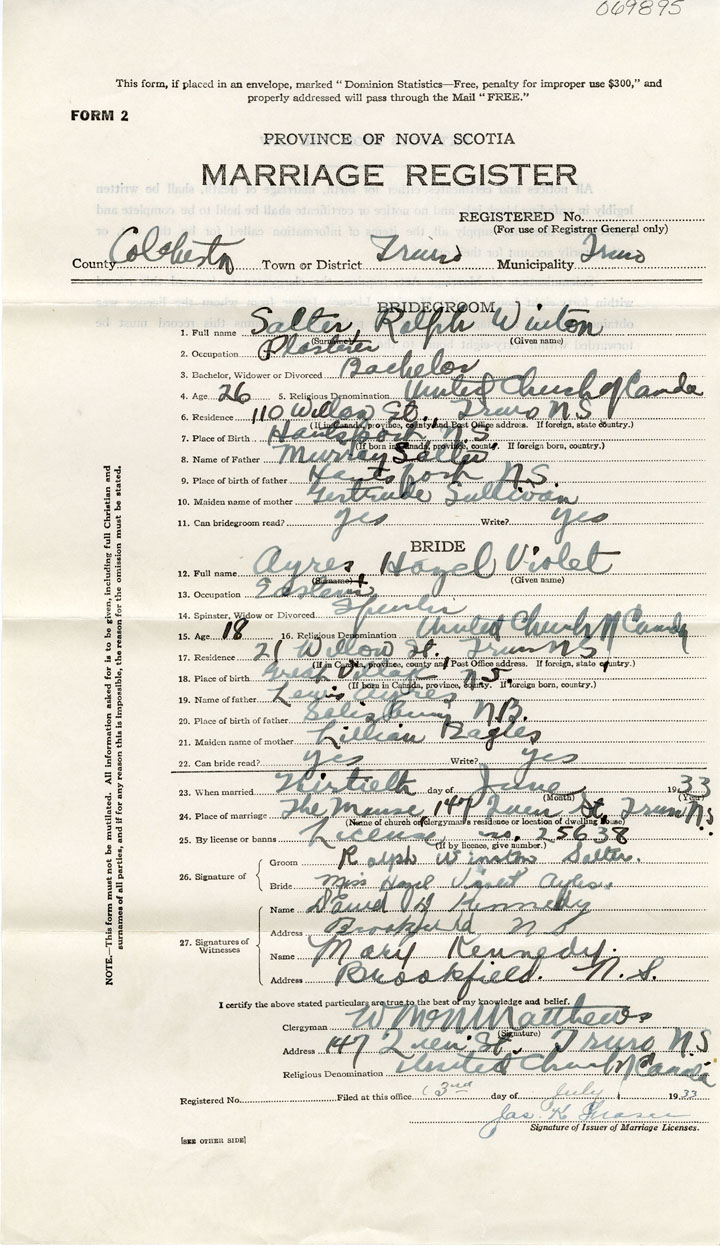 069895
This form, if placed in an envelope, marked "Dominion Statistics—Free, penalty for improper use $300," and
properly addressed will pass through the Mail "FREE."
FORM 2
PROVINCE OF NOVA SCOTIA
MARRIAGE REGISTER
REGISTERED No.
(For use of Registrar General only)
County Colchester Town or District Truro Municipality Truro
BRIDEGROOM
1. Full name Salter, Ralph Winston
(Surname) (Given name)
2. Occupation Plasterer
3. Bachelor, Widower or Divorced Bachelor
4. Age 26 5. Religious Denomination United Church of Canada
6. Residence 110 Willow St., Truro N.S.
(If in Canada, province, county and Post Office address. If foreign, state country.)
7. Place of Birth Hantsport N.S.
(If born in Canada, province, county. If foreign born, country.)
8. Name of Father Murray Salter
9. Place of birth of father Hantsport N.S.
10. Maiden name of mother Gertrude Sullivan
11. Can bridegroom read? yes Write? yes
BRIDE
12. Full name Ayres Hazel Violet
(Surname) (Given name)
13. Occupation
14. Spinster, Widow or Divorced Spinster
15. Age 18 16. Religious Denomination United Church of Canada
17. Residence 21 Willow St. Truro N.S.
(If in Canada, province, county and Post Office address. If foreign, state country.)
18. Place of birth Great Village N.S.
(If born in Canada, province, county. If foreign born, country.)
19. Name of father Lewis Ayres
20. Place of birth of father Salisbury N.B.
21. Maiden name of mother Lillian Eagles
22. Can bride read? yes Write? yes
23. When married Thirtieth day of June 1933
(Month) (Year)
24. Place of marriage The Manse, 147 Queen St. Truro N.S.
(Name of church or clergyman's residence or location of dwelling house)
25. By license or banns License no. 25638
(If by licence, give number.)
26. Signature of
Groom Ralph Winston Salter.
Bride Miss Hazel Violet Ayres.
27. Signatures of
Witnesses
Name David Kennedy
Address Brookfield N S
Name Mary Kennedy.
Address Brookfield. N.S.
I certify the above stated particulars are true to the best of my knowledge and belief.
Clergyman W McN Matthews
(Signature)
Address 147 Queen St., Truro N.S
Religious Denomination United Church of Canada
Registered No. Filed at this office 3rd day of July 1933
Jas. K. Fraser
Signature of Issuer of Marriage Licenses.
[SEE OTHER SIDE]
NOTE.—This form must not be mutilated. All information asked for is to be given, including full Christian and
surnames of all parties, and if for any reason this is impossible, the reason for the omission must be stated.